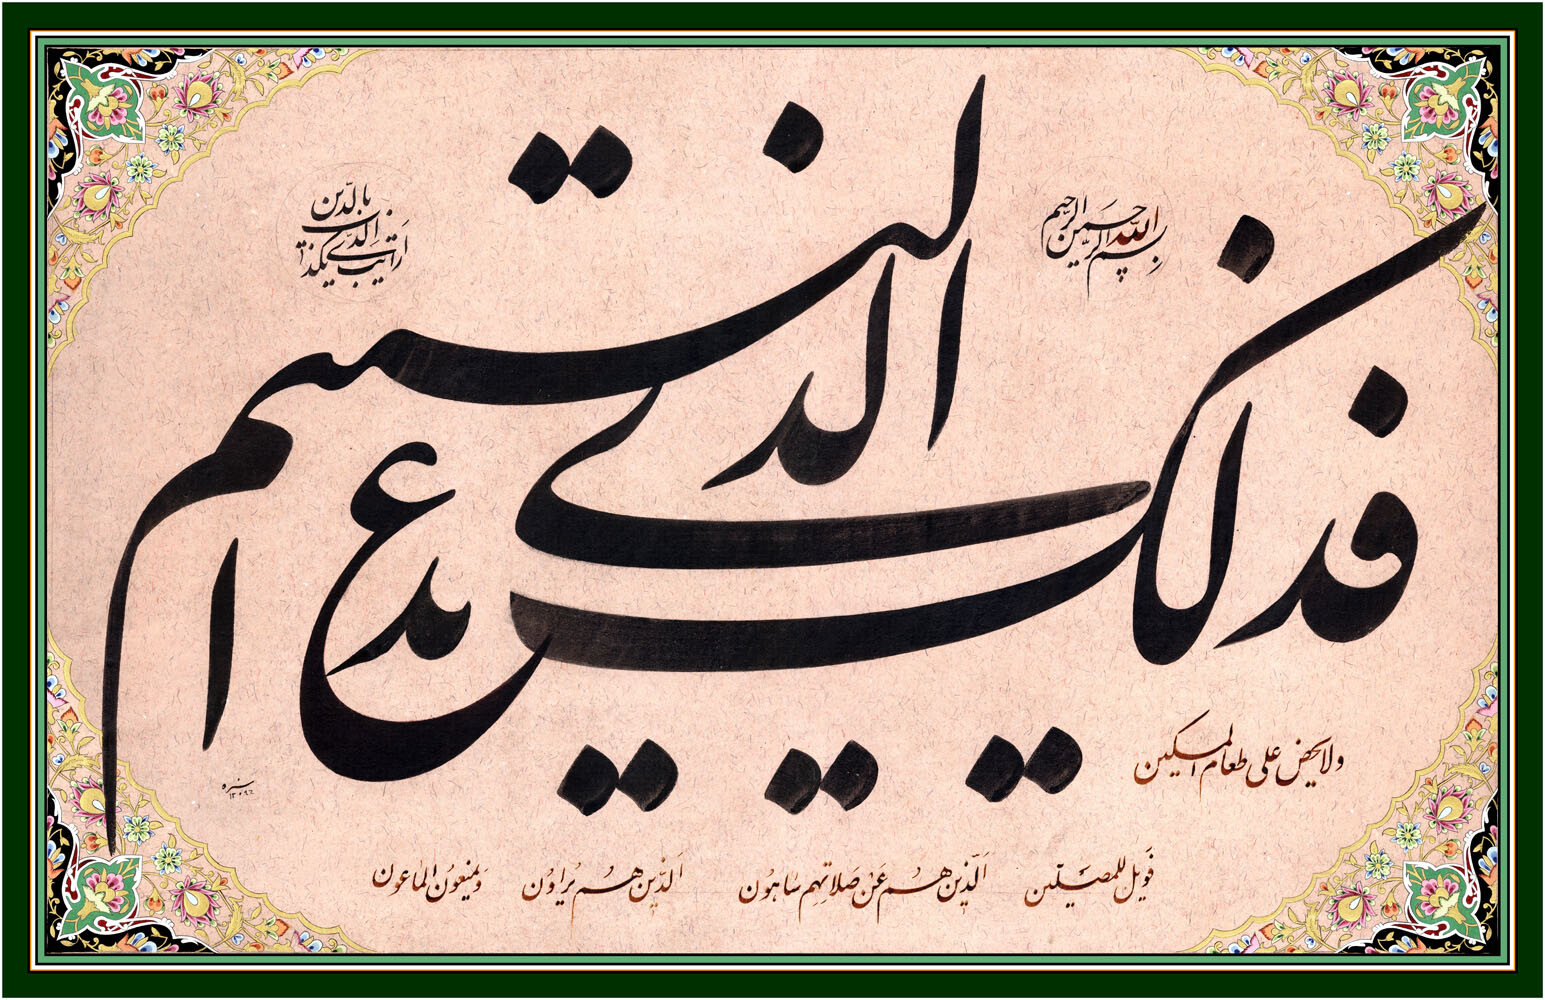 بسم الله الرحمن الرحيم
أرأيت الذي يكذب
بالدين
فذلك الذي يدع اليتيم
ولا يحض على طعام المسكين
فَويل للمصلّين الَّذين هُم عَن صَلاتِهِم سَاهُون الَّذين هُم يُراؤن وَيمنعون الماعون